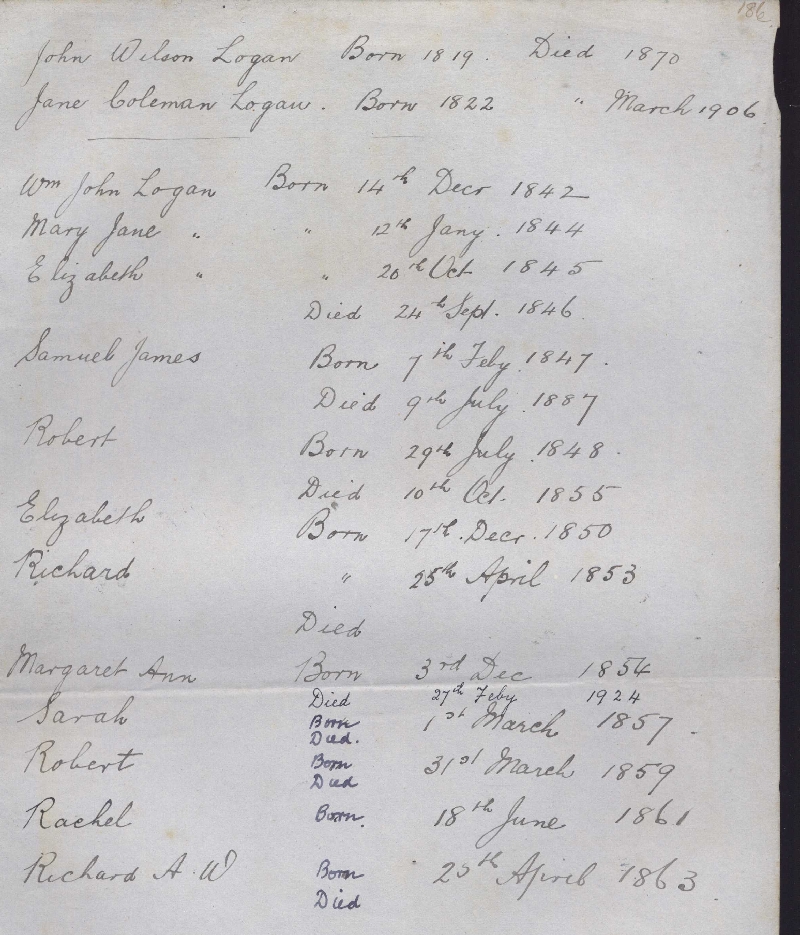 186
John Wilson Logan Born 1819. Died 1870
Jane Coleman Logan. Born 1822 " March 1906
Wm John Logan Born 14th Decr 1842
Mary Jane " " 12th Jany. 1844
Elizabeth " " 20th Oct 1845
Died 24th Sept. 1846
Samuel James Born 7th Feby 1847.
Died 9th July 1887
Robert Born 29th July 1848.
Died 10th Oct. 1855
Elizabeth Born 17th. Decr. 1850
Richard " 25th April 1853
Died
Margaret Ann Born 3rd Dec 1854
Died 27th Feby 1924
Sarah Born 1st March 1857.
Died.
Robert Born 31st March 1859
Died
Rachel Born. 18th June 1861
Richard A. W Born 25th April 1863
Died